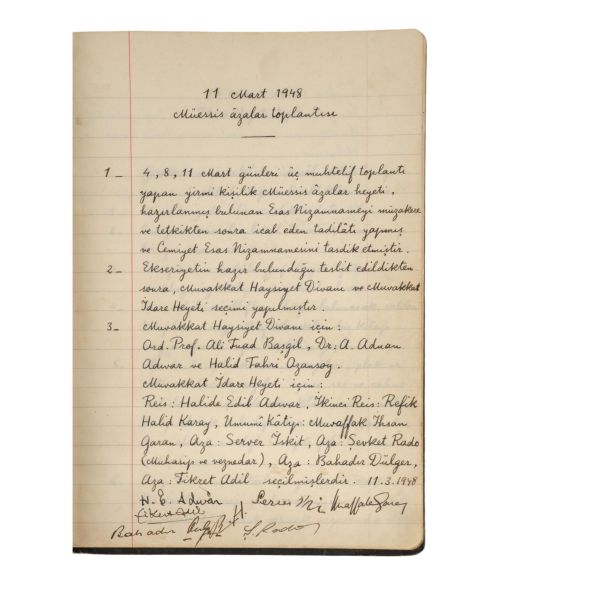 11 Mart 1948
Müessis âzalar toplantısı
1 – 4, 8, 11 Mart günleri üç muhtelif toplantı
yapan yirmi kişilik Müessis âzalar heyeti,
hazırlanmış bulunan Esas Nizamnameyi müzakere
ve tetkikten sonra icab eden tadilâtı yapmış
ve Cemiyet Esas Nizamnamesini tasdik etmiştir.
2 – Ekseriyetin hazır bulunduğu tesbit edildikten
sonra, Muvakkat Haysiyet Divanı ve Muvakkat
İdare Heyeti seçimi yapılmıştır.
3 – Muvakkat Haysiyet Divanı için:
Ord. Prof. Ali Fuad Başgil, Dr: A. Adnan
Adıvar ve Halid Fahri Ozansoy.
Muvakkat İdare Heyeti için:
Reis: Halide Edib Adıvar, İkinci Reis: Refik
Halid Karay, Umumî Kâtip: Muvaffak İhsan
Garan, Aza: Server İskit, Aza: Şevket Rado
(Muhasip ve veznedar), Aza: Bahadır Dülger,
Aza: Fikret Adil seçilmişlerdir. 11.3.1948
H. E. Adıvar
Fikret Adil
Bahadır
Ş. Rado